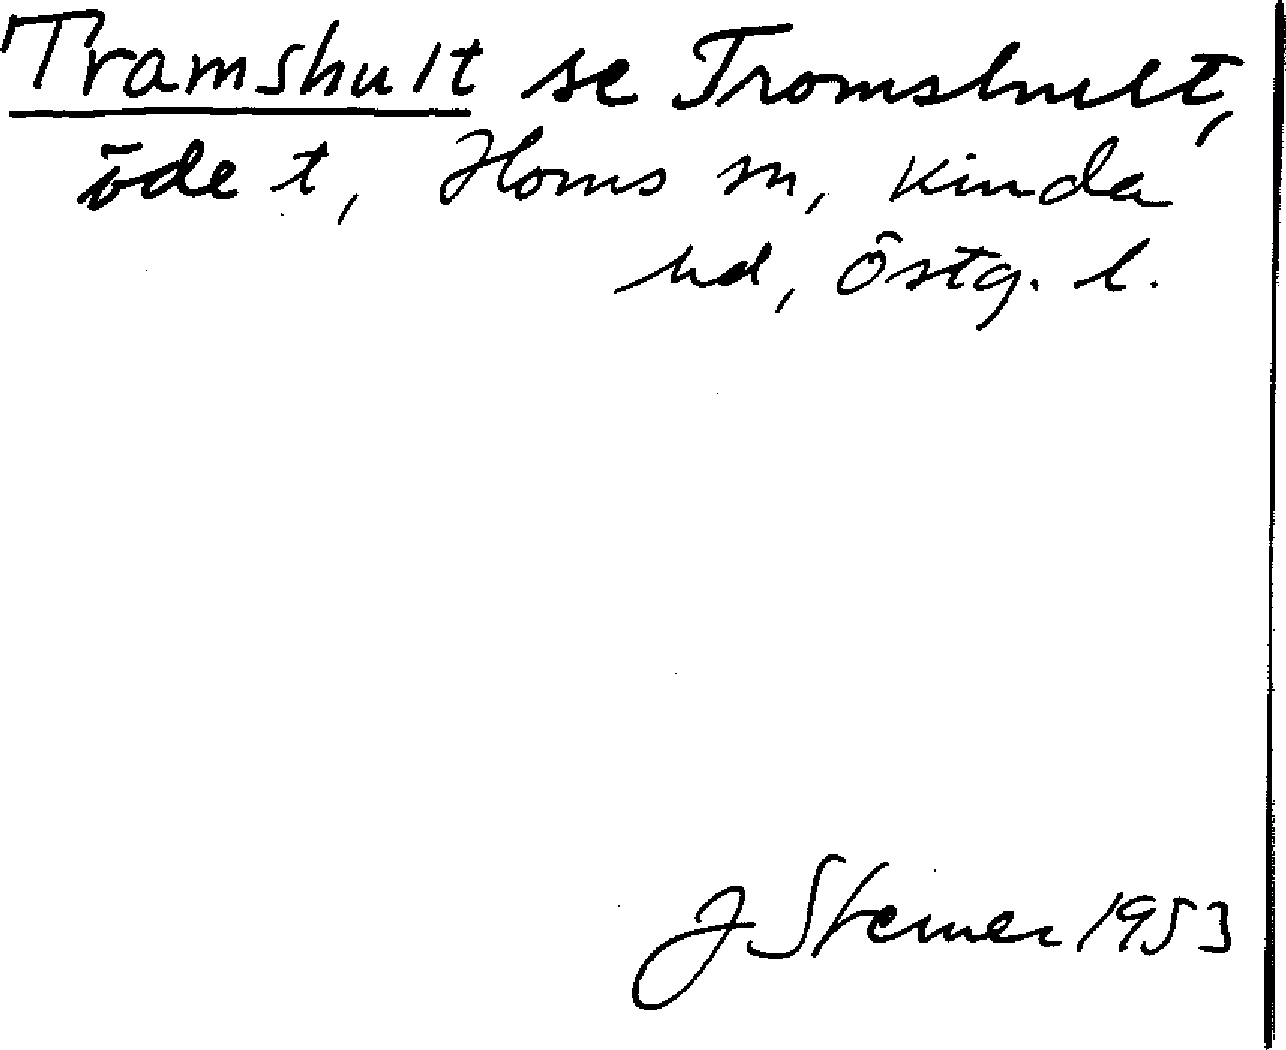 Tramshult se Tromshult,
öde t, Horns sn, Kinda
hd, Östg. l.
J Sterner 1953